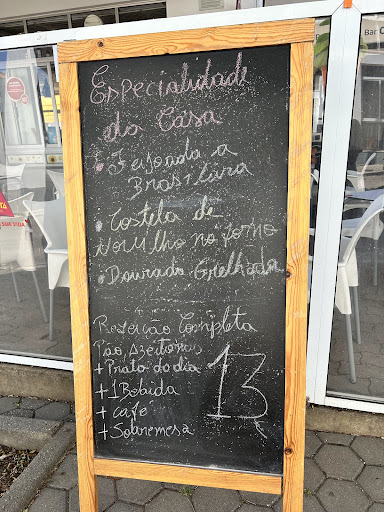 Especialidade
da Casa
• Feijoada a
Brasileira
• Costela de
Novilho no forno
• Dourada Grelhada
Refeição Completa
Pão, Azeitonas
+ Prato do dia
+ 1 Bebida
+ café
+ Sobremesa
13
Bar